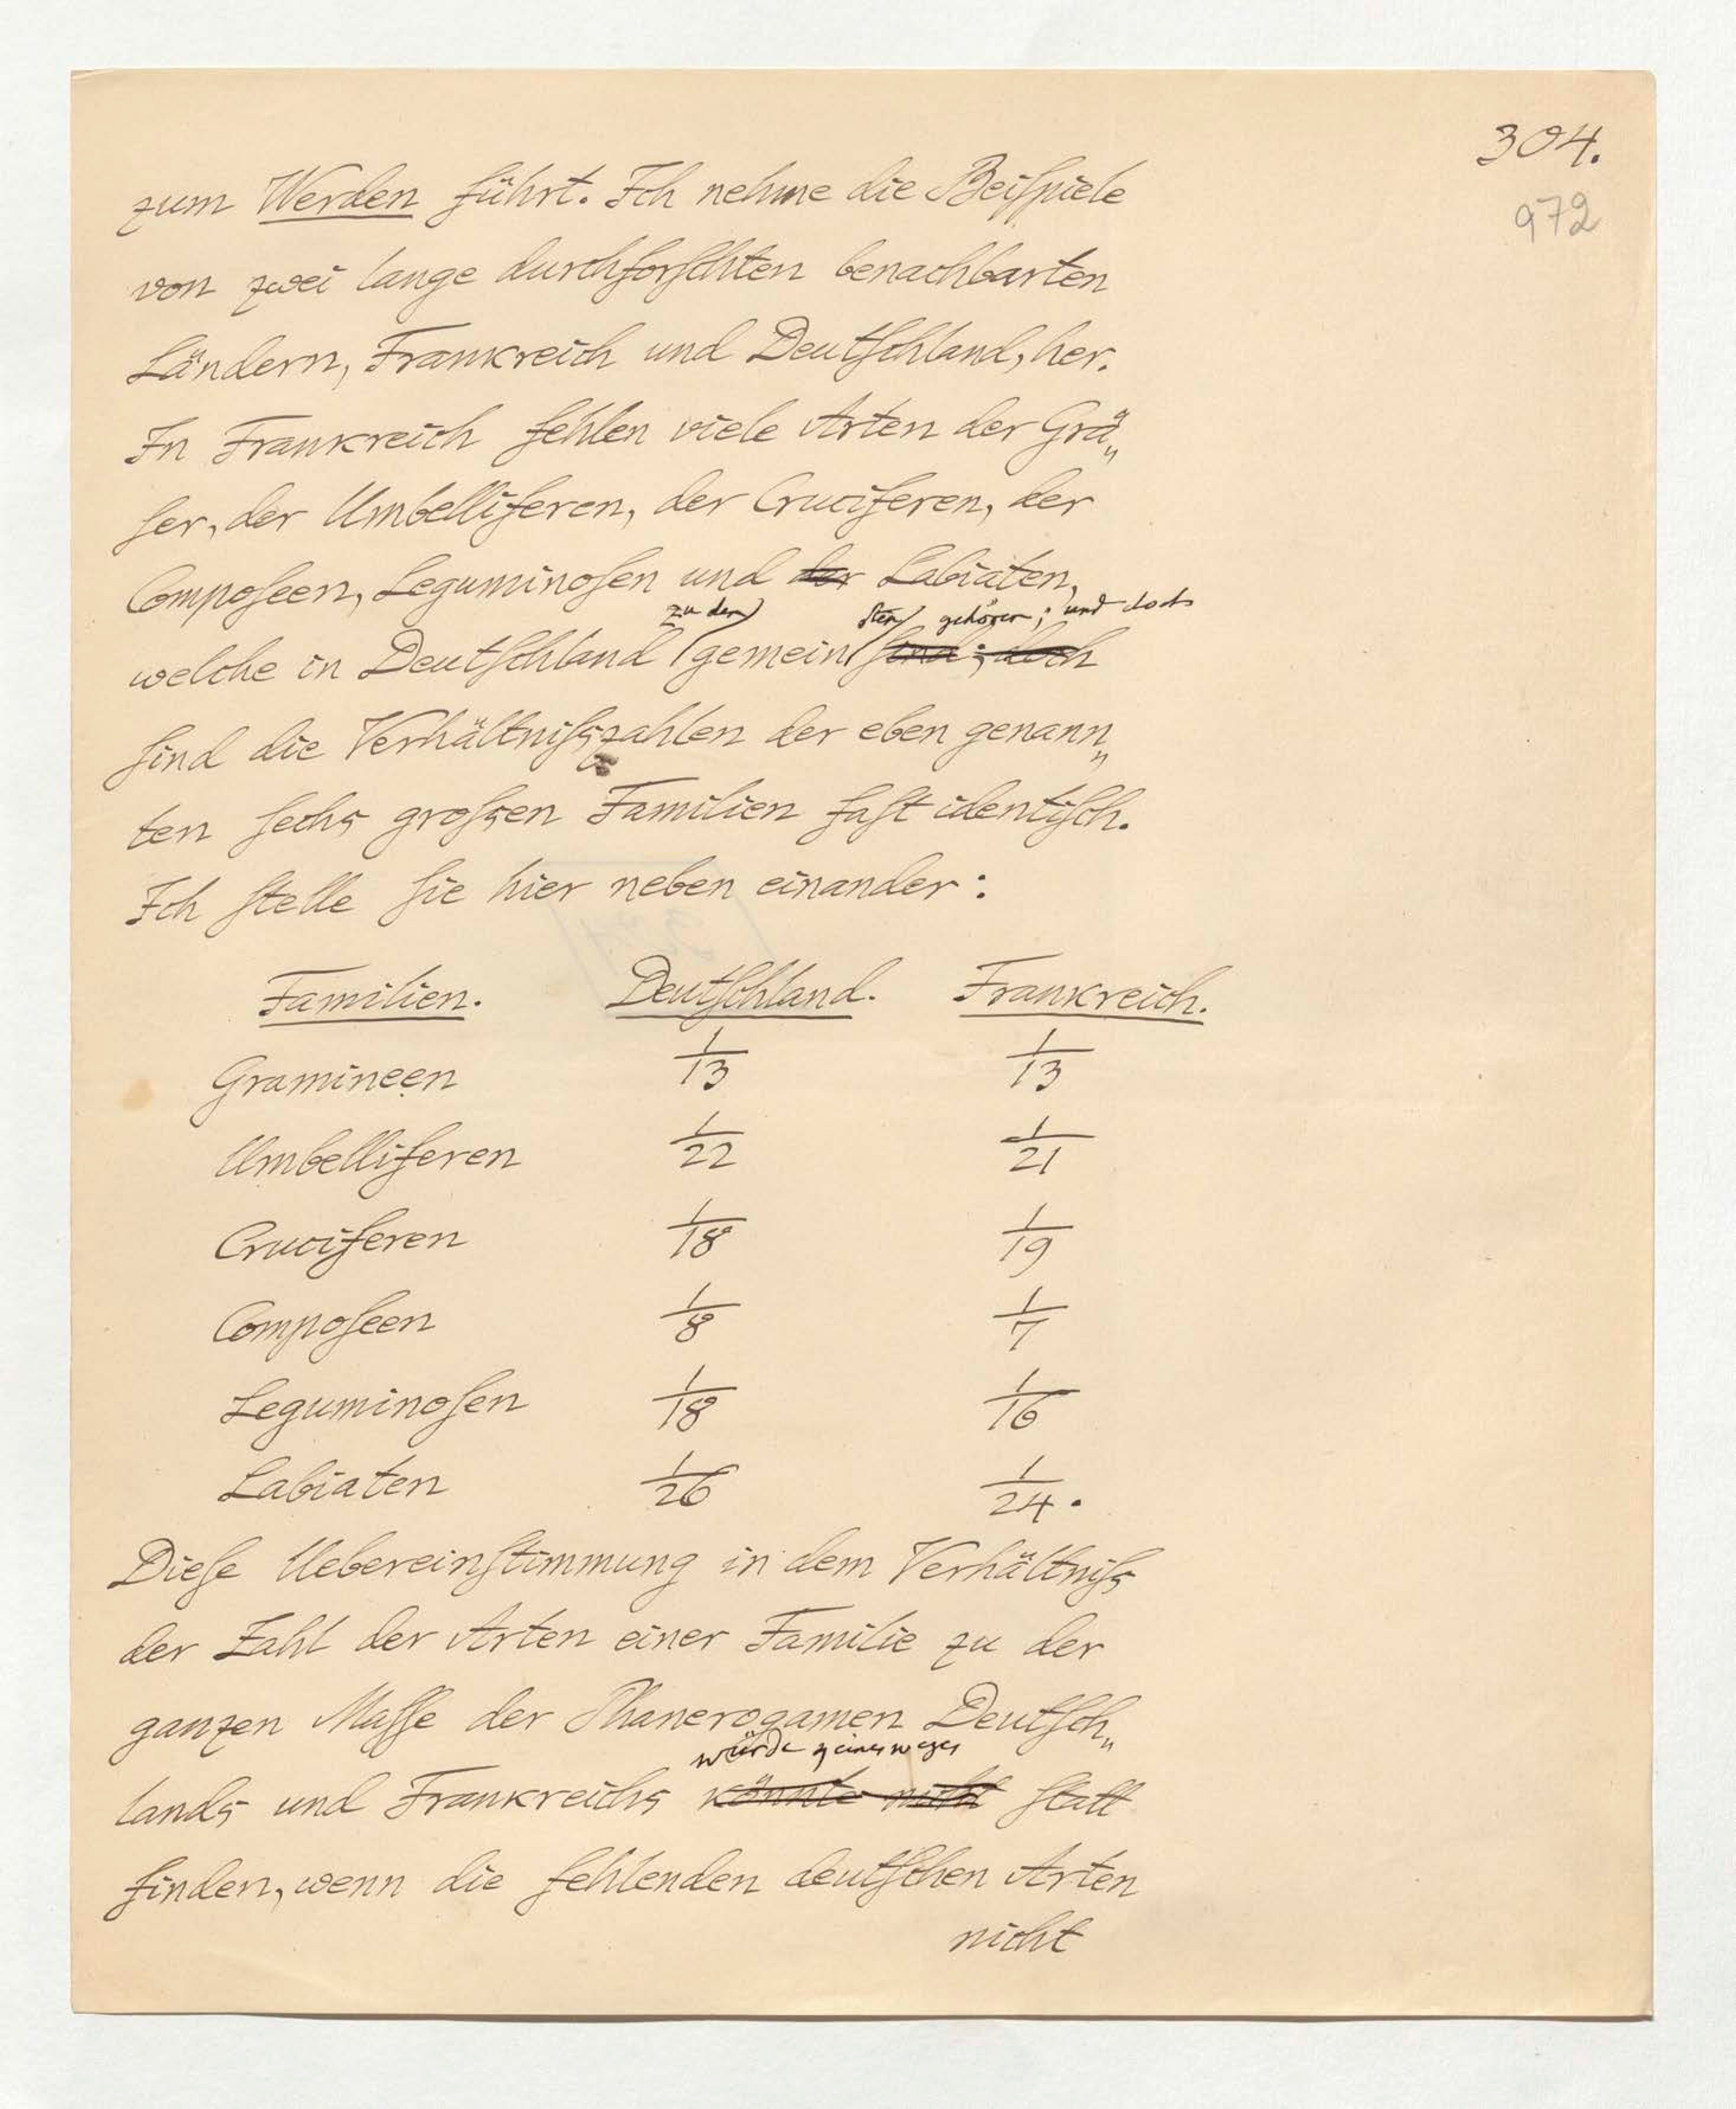 304.
972
zum Werden führt. Ich nehme die Beiſpiele
von zwei lange durchforſchten benachbarten
Ländern, Frankreich und Deutſchland, her.
In Frankreich fehlen viele Arten der Grä„
ſer, der Umbelliferen, der Cruciferen, der
Compoſeen, Leguminoſen und der Labiaten,
zu den ſten gehören; und doch
welche in Deutſchland gemein ſind; doch
ſind die Verhältniſszahlen der eben genann„
ten ſechs groſsen Familien faſt identiſch.
Ich ſtelle ſie hier neben einander:
Familien. Deutſchland. Frankreich.
Gramineen 1/13 1/13
Umbelliferen 1/22 1/21
Cruciferen 1/18 1/19
Compoſeen 1/8 1/7
Leguminoſen 1/18 1/16
Labiaten 1/26 1/24.
Dieſe Uebereinſtimmung in dem Verhältniſs
der Zahl der Arten einer Familie zu der
ganzen Maſſe der Phanerogamen Deutſch„
würde keinesweges
lands und Frankreichs könnte nicht ſtatt
finden, wenn die fehlenden deutſchen Arten
nicht